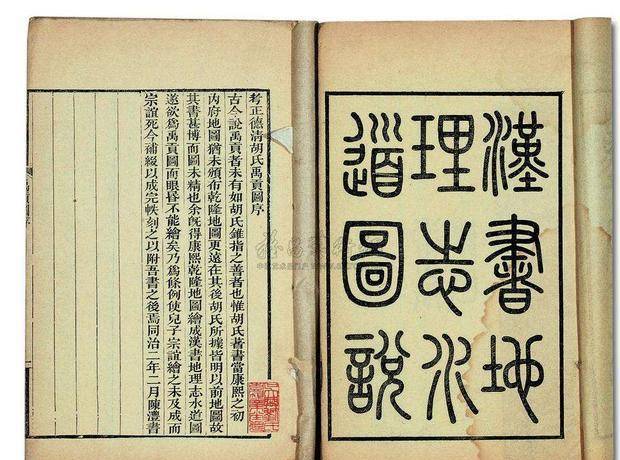 漢書地
理志水
道圖說
考正德清胡氏禹貢圖序
古今說禹貢者未有如胡氏錐指之善者也惟胡氏著書當康熙之初
內府地圖猶未頒布乾隆地圖更遠在其後胡氏所據皆明以前地圖故
其書甚博而圖未精也余旣得康熙乾隆地圖繪成漢書地理志水道圖
遂欲爲禹貢圖而眼昏不能繪矣乃爲條例使兒子宗誼繪之未及成而
宗誼死今補綴以成完帙刻之以附吾書之後焉同治二年二月陳澧書